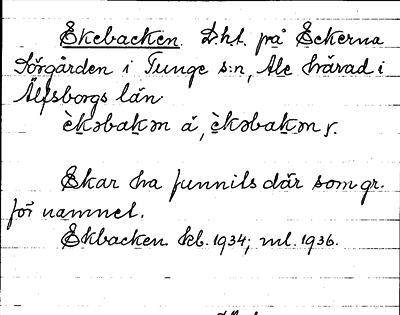 Ekebacken. Dht. på Eckerna
Sörgården i Tunge s:n, Ale härad i
Älfsborgs län
è̀kəbakəm å, è̀kəbakəm y.
Ekar ha funnits där som gr.
för namnet.
Ekbacken kb. 1934; ml. 1936.